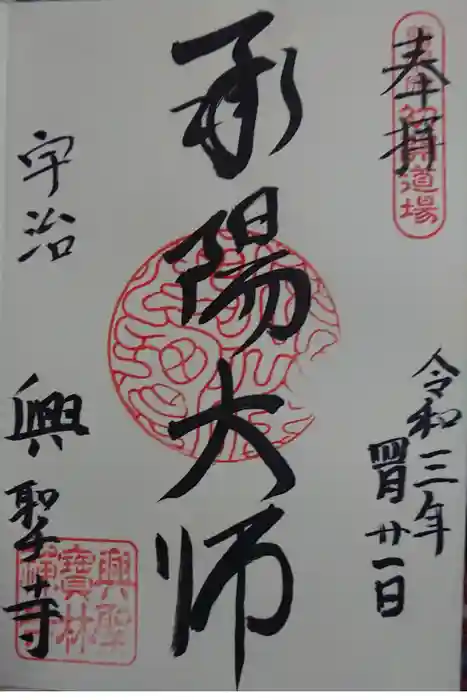 奉拝
道場
令和三年
四月廿一日
承陽大師
宇治
興聖寺
興聖
寶林